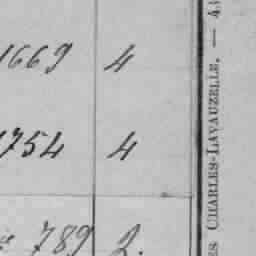 1669 4
1754 4
789 2.
ES CHARLES-LAVAUZELLE. — 4.